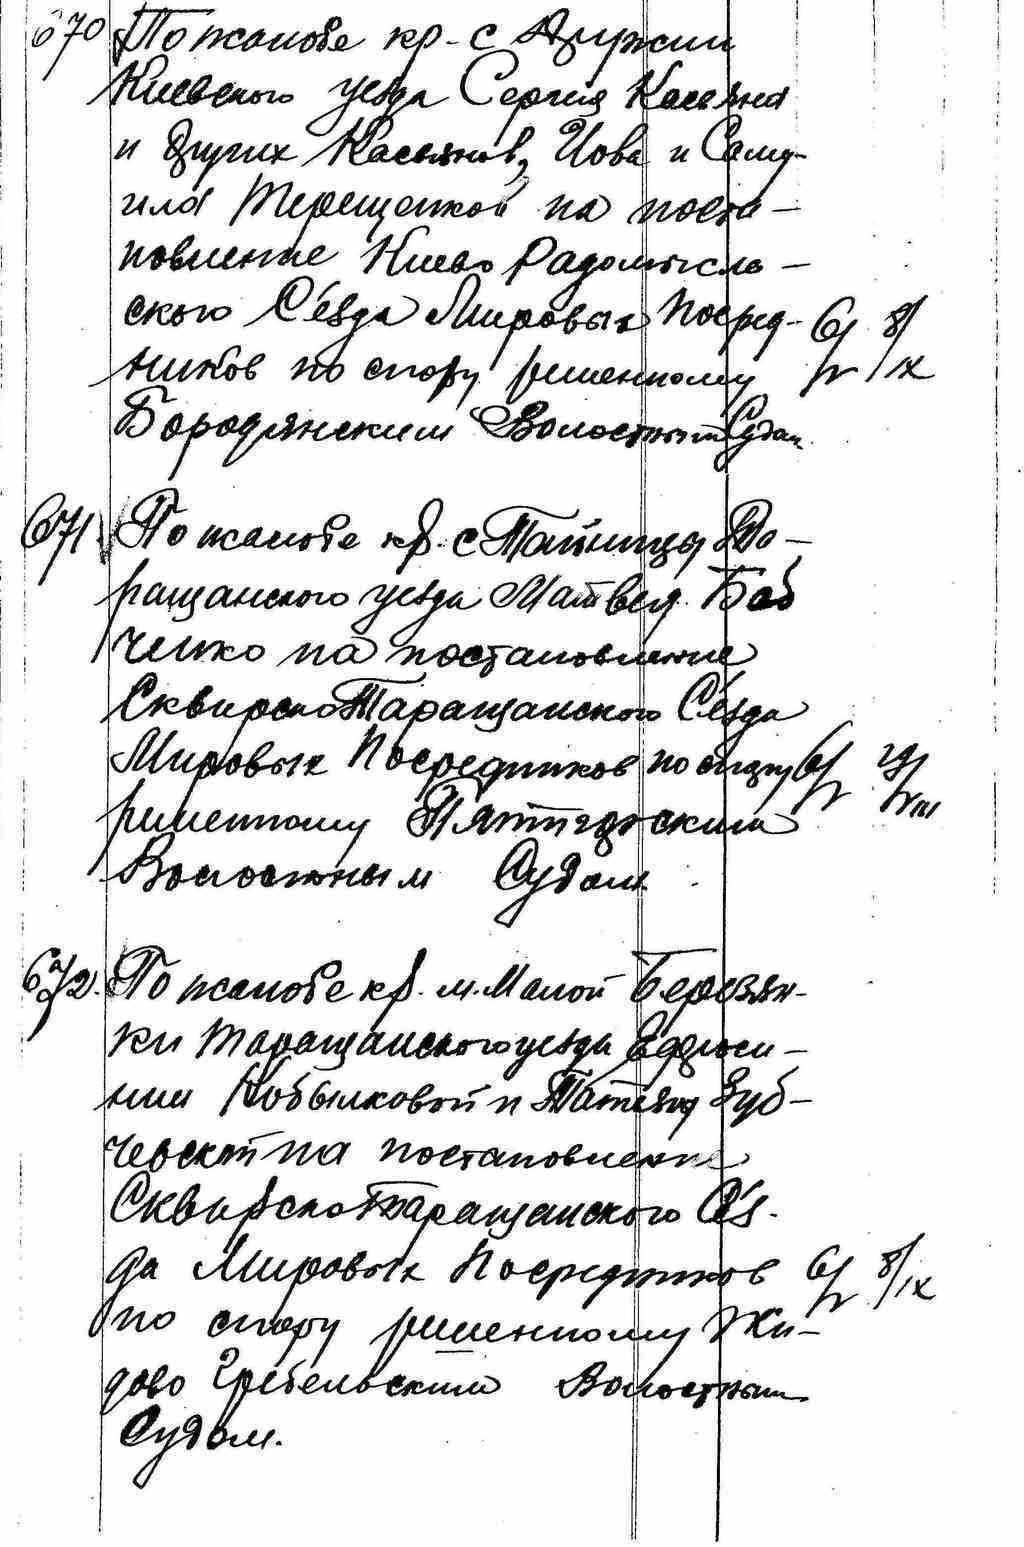 670 По жалобе кр. с Дружни
Киевского уезда Сергия Касьяна
и других Касьянов, Иова и Саму-
ила Терещенков на поста-
новление Киево Радомысль-
ского Съезда Мировых Посред- 6/V 8/IX
ников по спору решенному
Бородянским Волостным Судом
671 По жалобе кр. с Тайницы Та-
ращанского уезда Матвея Баб
ченко на постановление
Сквирско Таращанского Съезда
Мировых Посредников по спору 6/V
решенному Пятигорским
Волостным Судом.
672. По жалобе кр. м. Малой Березян-
ки Таращанского уезда Ефроси-
нии Кобылковой и Татьяны Зуб-
чевской на постановление
Сквирско Таращанского Съез-
да Мировых Посредников 6/V 8/IX
по спору решенному Жи-
дово Гребельским Волостным
Судом.